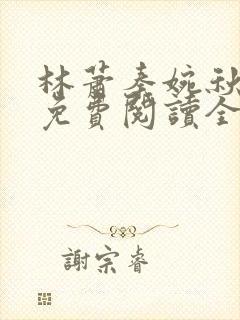 林蕭秦婉秋
免費閱讀全
謝宗睿